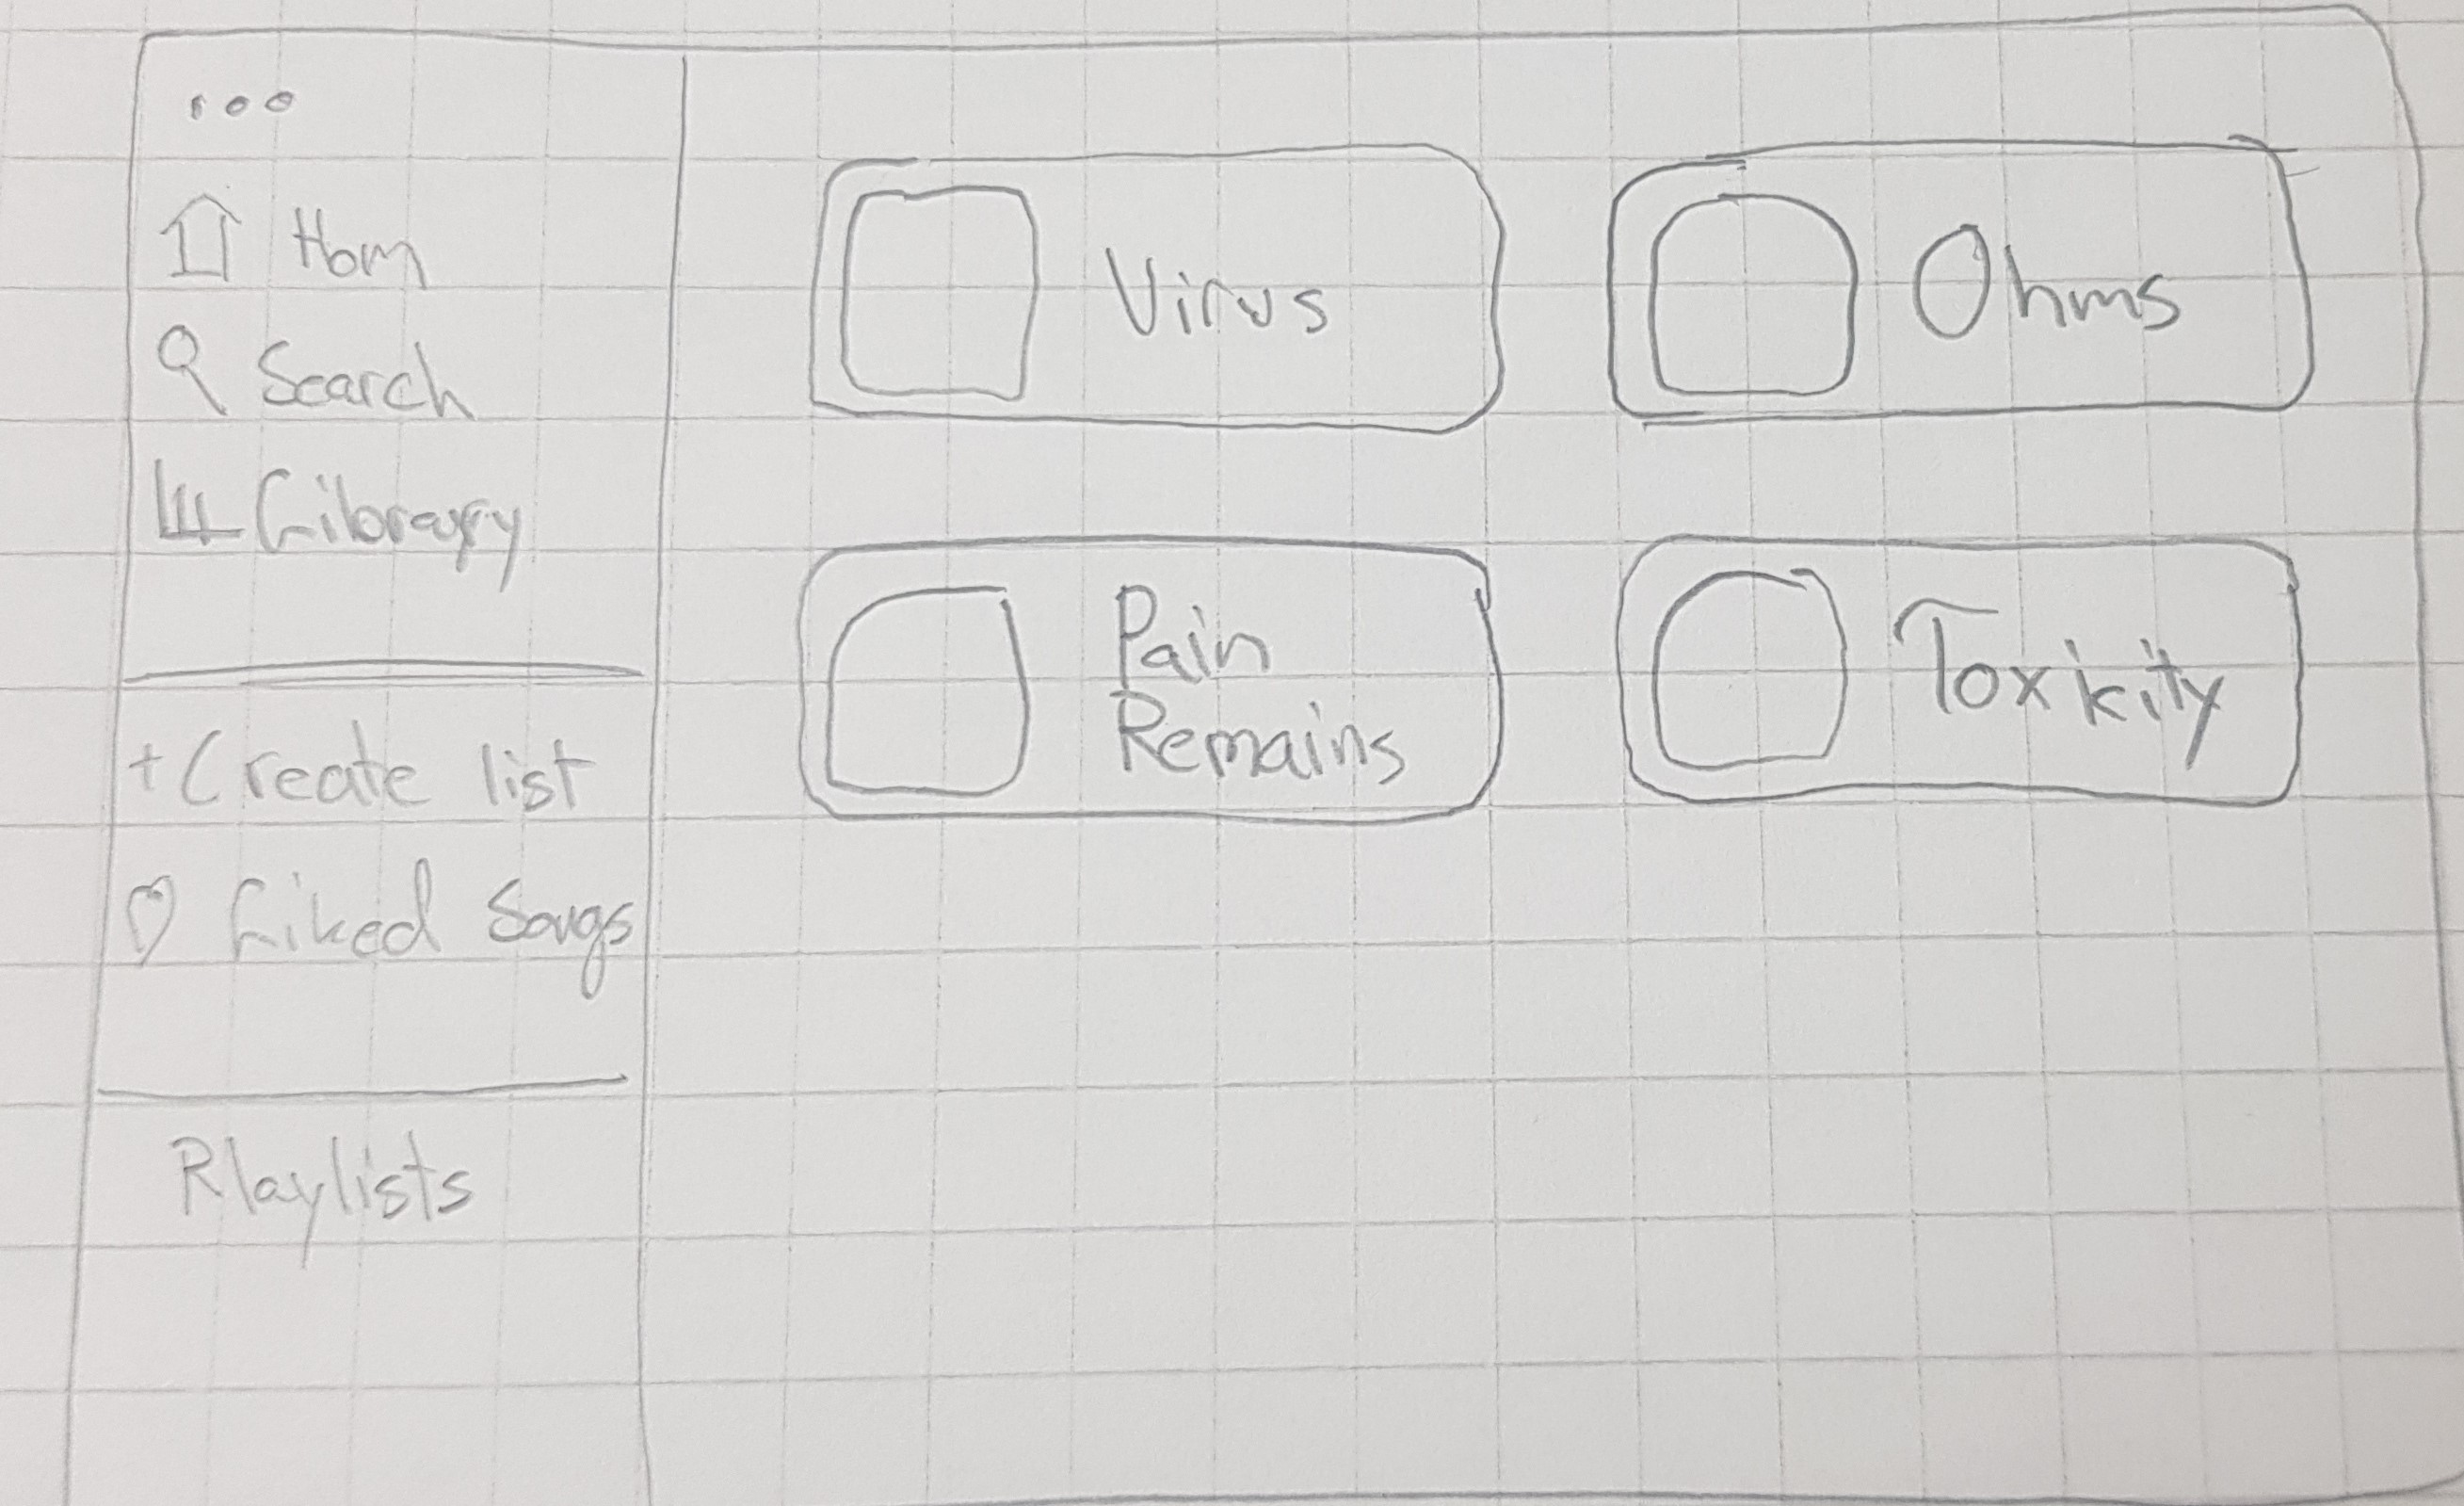 Hom
Search
Library
+ Create list
Liked Songs
Playlists
Virus
Ohms
Pain
Remains
Toxikity